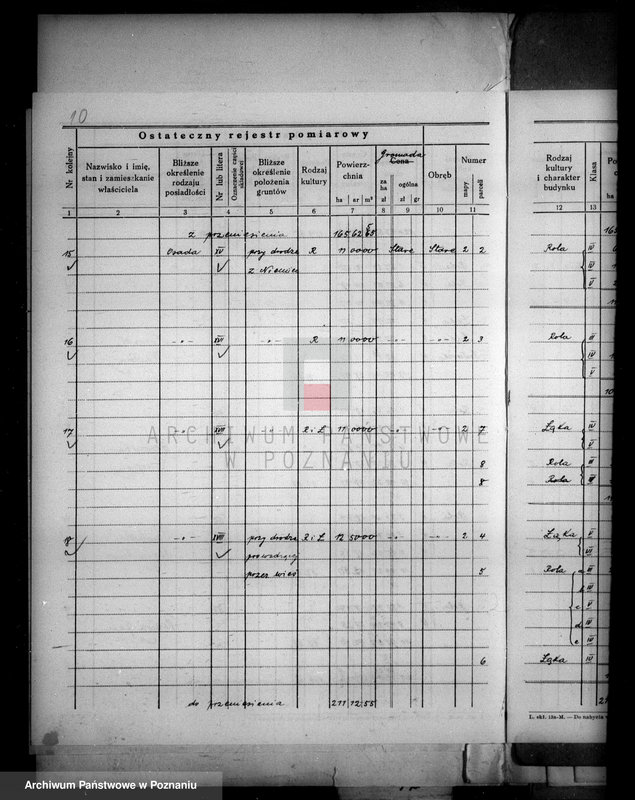 10
Ostateczny rejestr pomiarowy
Nr kolejny
Nazwisko i imię, stan i zamieszkanie właściciela
Bliższe określenie rodzaju posiadłości
Nr lub litera
Oznaczenie części składowej
Bliższe określenie położenia gruntów
Rodzaj kultury
Powierzchnia
ha ar m²
Gromada
Cena
za ha zł
ogólna
zł gr
Obręb
Numer
mapy
parceli
Rodzaj kultury i charakter budynku
Klasa
ha
1 2 3 4 5 6 7 8 9 10 11 12 13
z przeniesienia 165 62
15 Osada XV przy drodze R 11 0000 Stare Stare 2 2 Rola IV
z Niemiec V
16 -"- XVI R 11 0000 -"- -"- 2 3 Rola III
IV
V
17 -"- XVII " R i Ł 11 0000 -"- -"- 2 7 Łąka IV
V
8 Rola III
8 Rola
18 -"- XVIII przy drodze R i Ł 12 5000 -"- -"- 2 4 Łąka V
prowadzącej VI
przez wieś 5 Rola a III
b IV
c V
d IV
e IV
6 Łąka IV
do przeniesienia 211 12 55
L. skł. 13a-M. — Do nabycia
ARCHIWUM PAŃSTWOWE
W POZNANIU
Archiwum Państwowe w Poznaniu